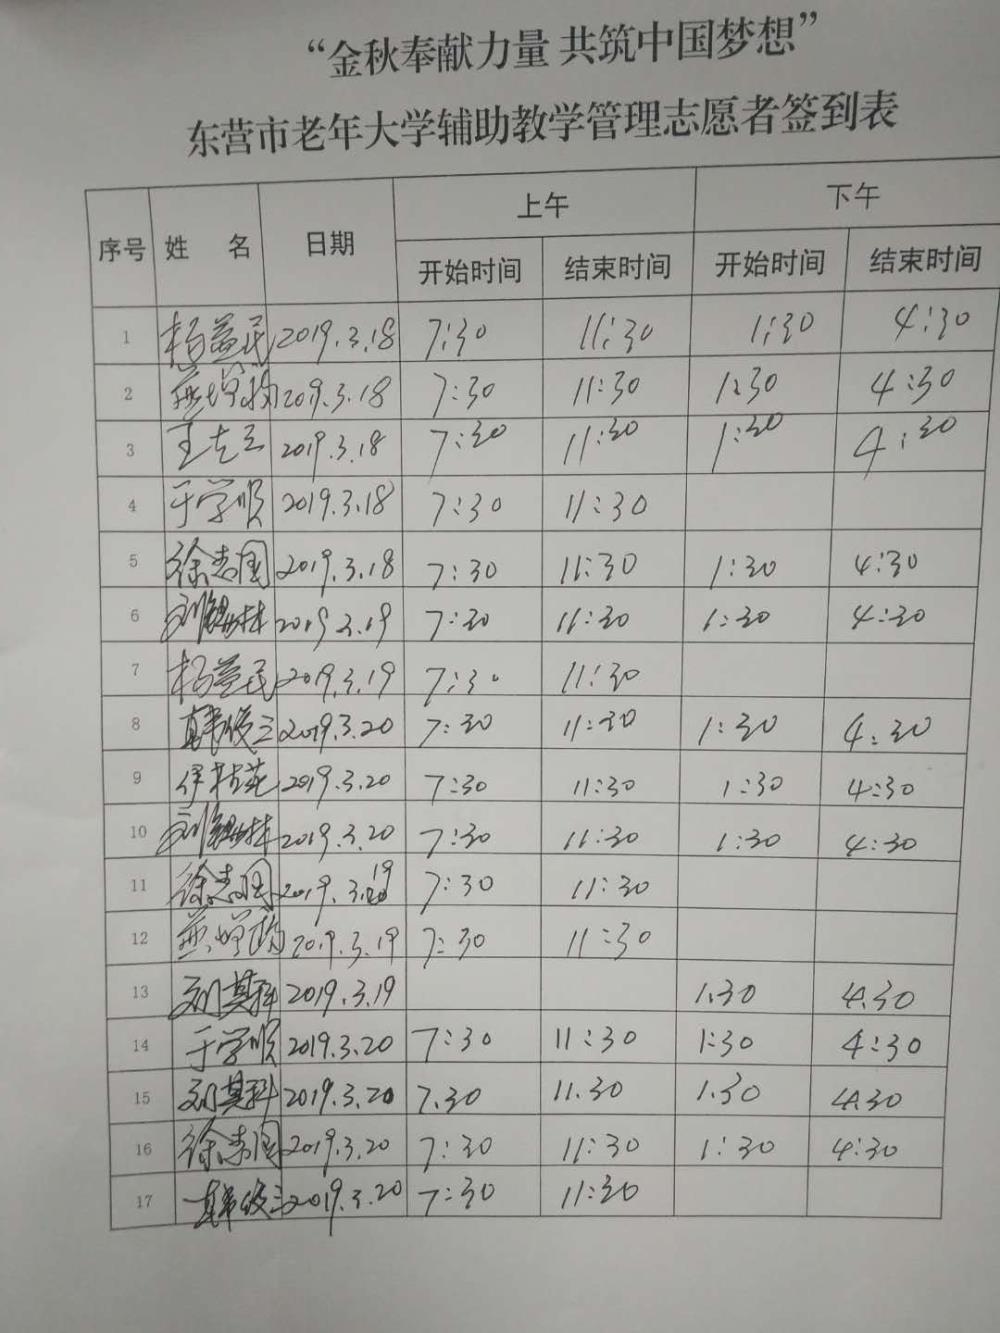 “金秋奉献力量 共筑中国梦想”
东营市老年大学辅助教学管理志愿者签到表
序号 姓 名 日期 上午 下午
开始时间 结束时间 开始时间 结束时间
1 杨益民 2019.3.18 7:30 11:30 1:30 4:30
2 燕增 2019.3.18 7:30 11:30 1:30 4:30
3 王 2019.3.18 7:30 11:30 1:30 4:30
4 于学顺 2019.3.18 7:30 11:30
5 徐志国 2019.3.18 7:30 11:30 1:30 4:30
6 刘 2019.3.19 7:30 11:30 1:30 4:30
7 杨益民 2019.3.19 7:30 11:30
8 韩俊三 2019.3.20 7:30 11:30 1:30 4:30
9 伊桂花 2019.3.20 7:30 11:30 1:30 4:30
10 刘 2019.3.20 7:30 11:30 1:30 4:30
11 徐志国 2019.3.19 7:30 11:30
12 燕增 2019.3.19 7:30 11:30
13 刘其科 2019.3.19 1.30 4.30
14 于学顺 2019.3.20 7:30 11:30 1:30 4:30
15 刘其科 2019.3.20 7.30 11.30 1.30 4.30
16 徐志国 2019.3.20 7:30 11:30 1:30 4:30
17 韩俊三 2019.3.20 7:30 11:30